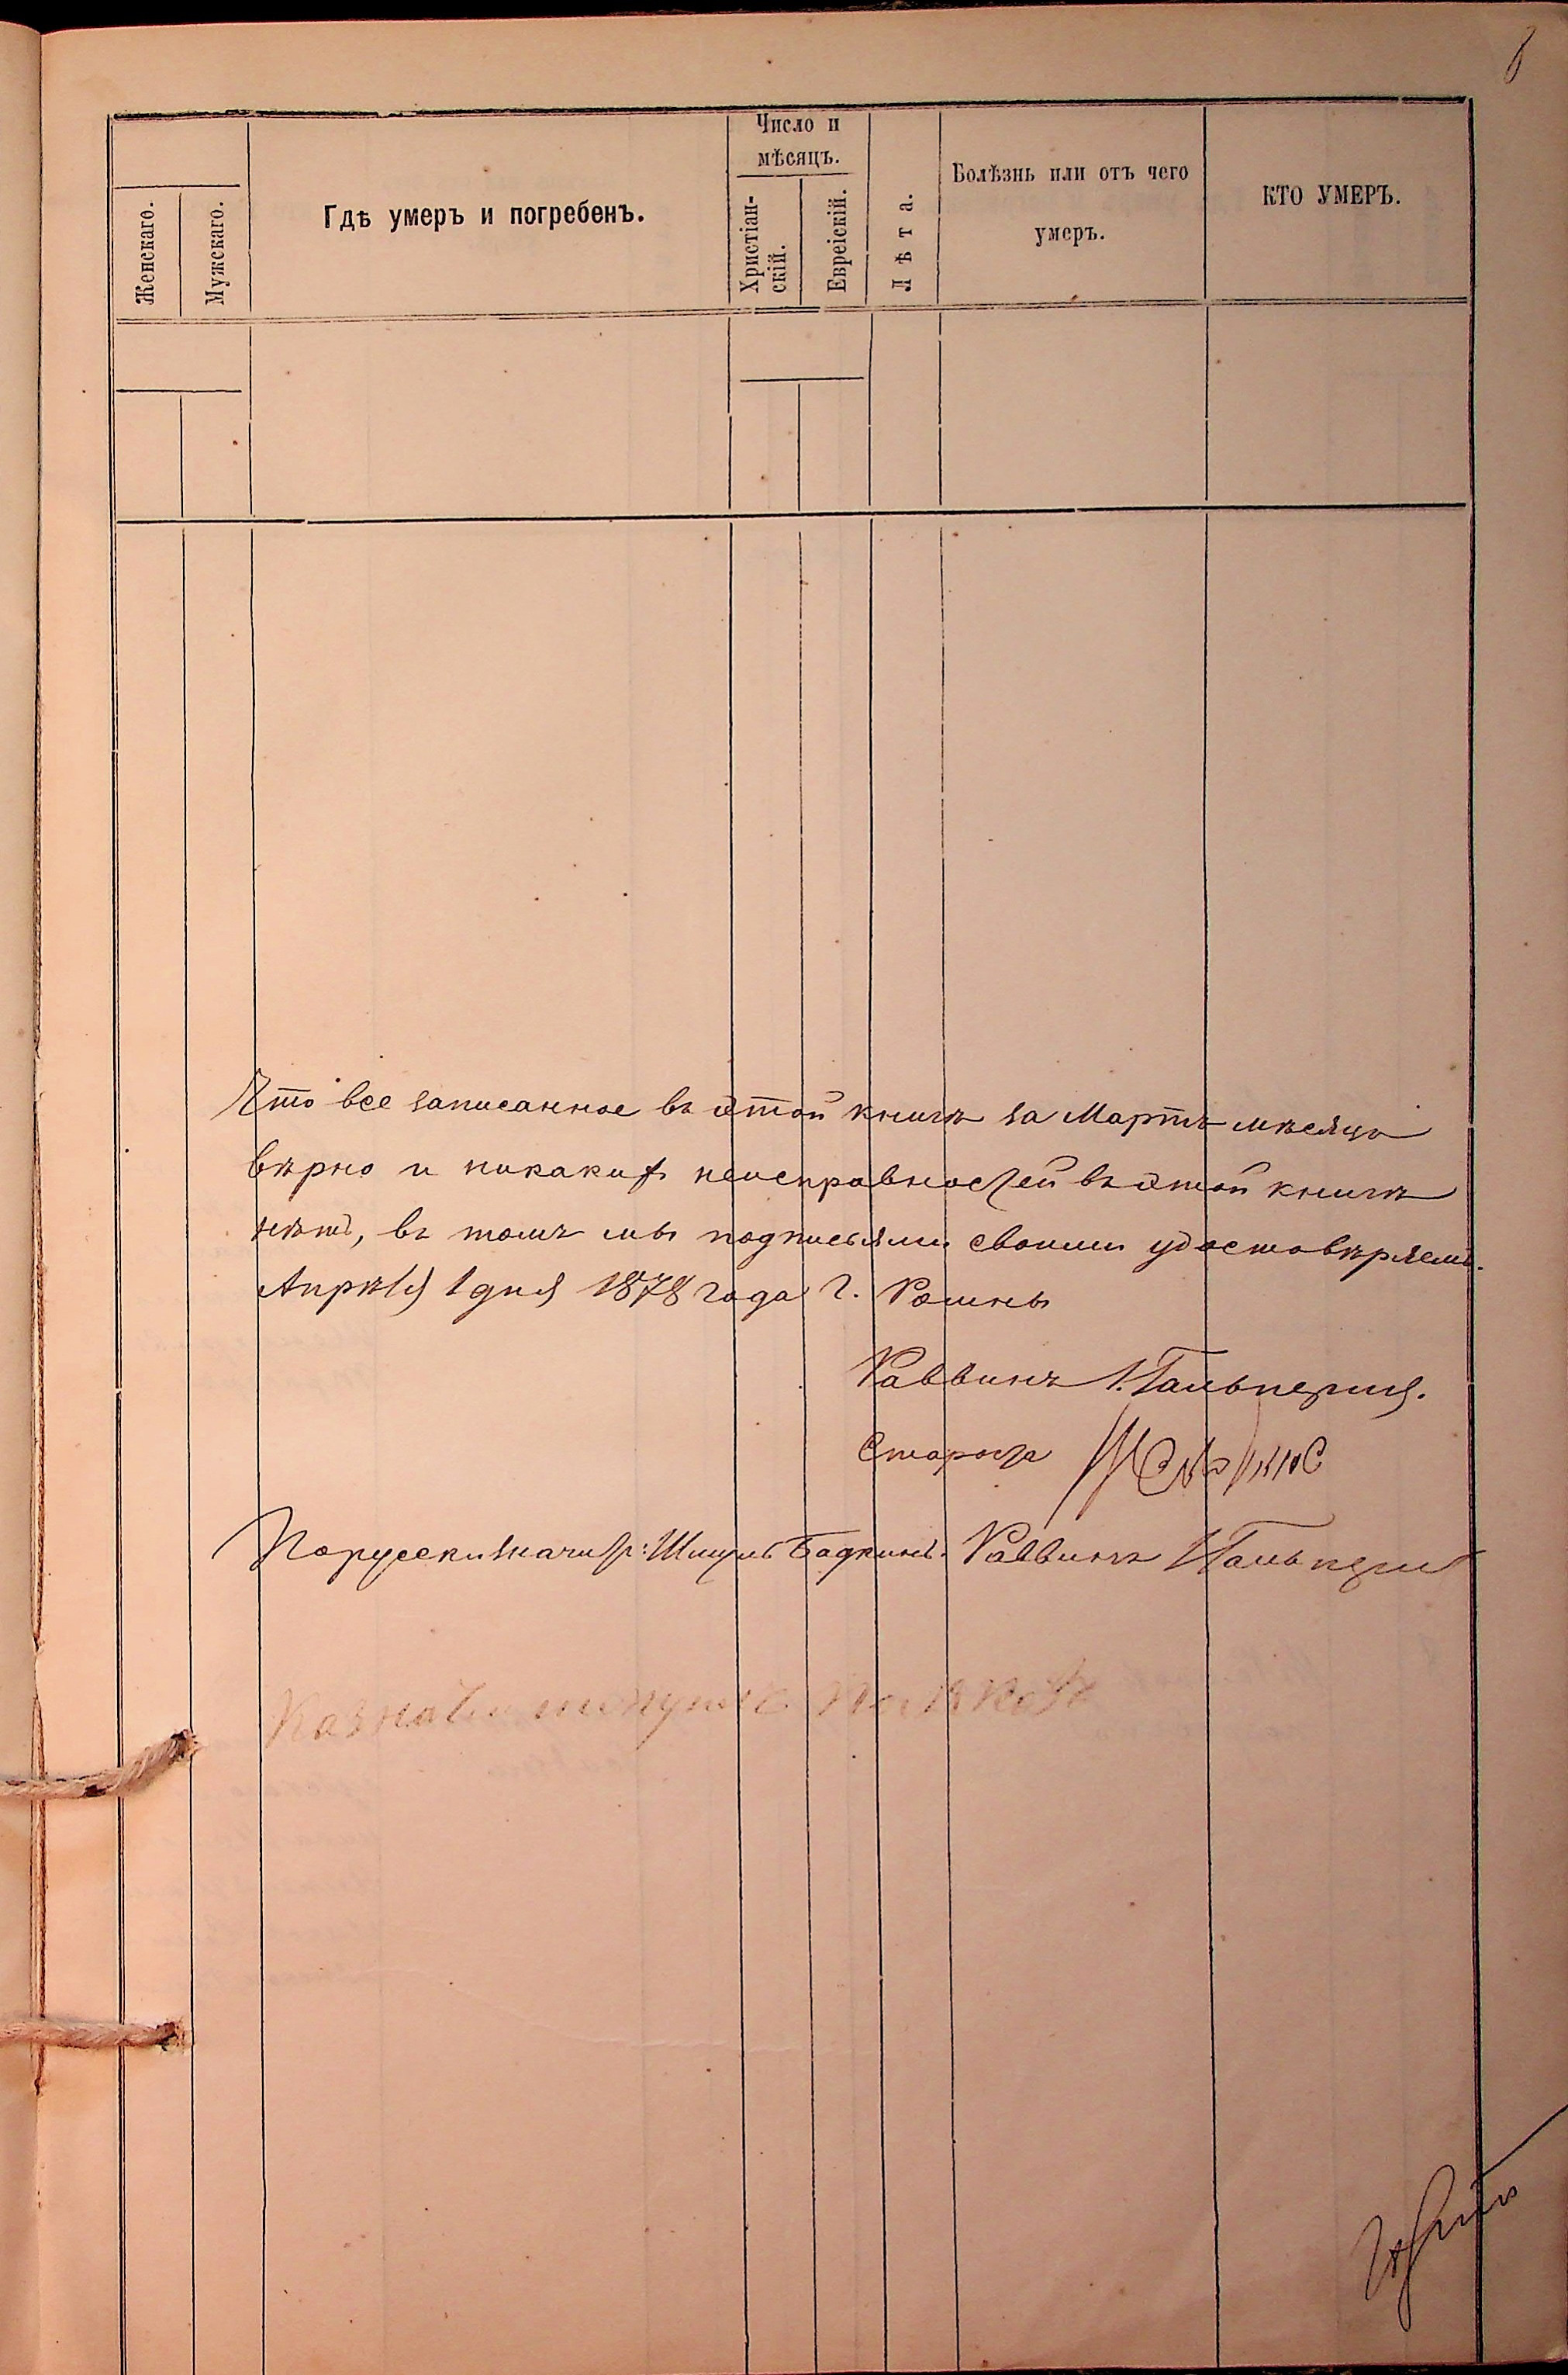 Число и
мѣсяцъ.
Женскаго.
Мужскаго.
Гдѣ умеръ и погребенъ.
Христіан-
скій.
Еврейскій.
Лѣта.
Болѣзнь или отъ чего
умеръ.
КТО УМЕРЪ.
Что все записанное въ этой книгѣ за Мартъ мѣсяцъ
вѣрно и никакихъ неисправностей въ этой книгѣ
нѣтъ, въ томъ мы подписями своими удостовѣряемъ.
Апрѣля 1 дня 1878 года г. Ромны
Раввинъ Гальперинъ.
Староста
По русски значитъ: Раввинъ Гальперинъ
Казначей